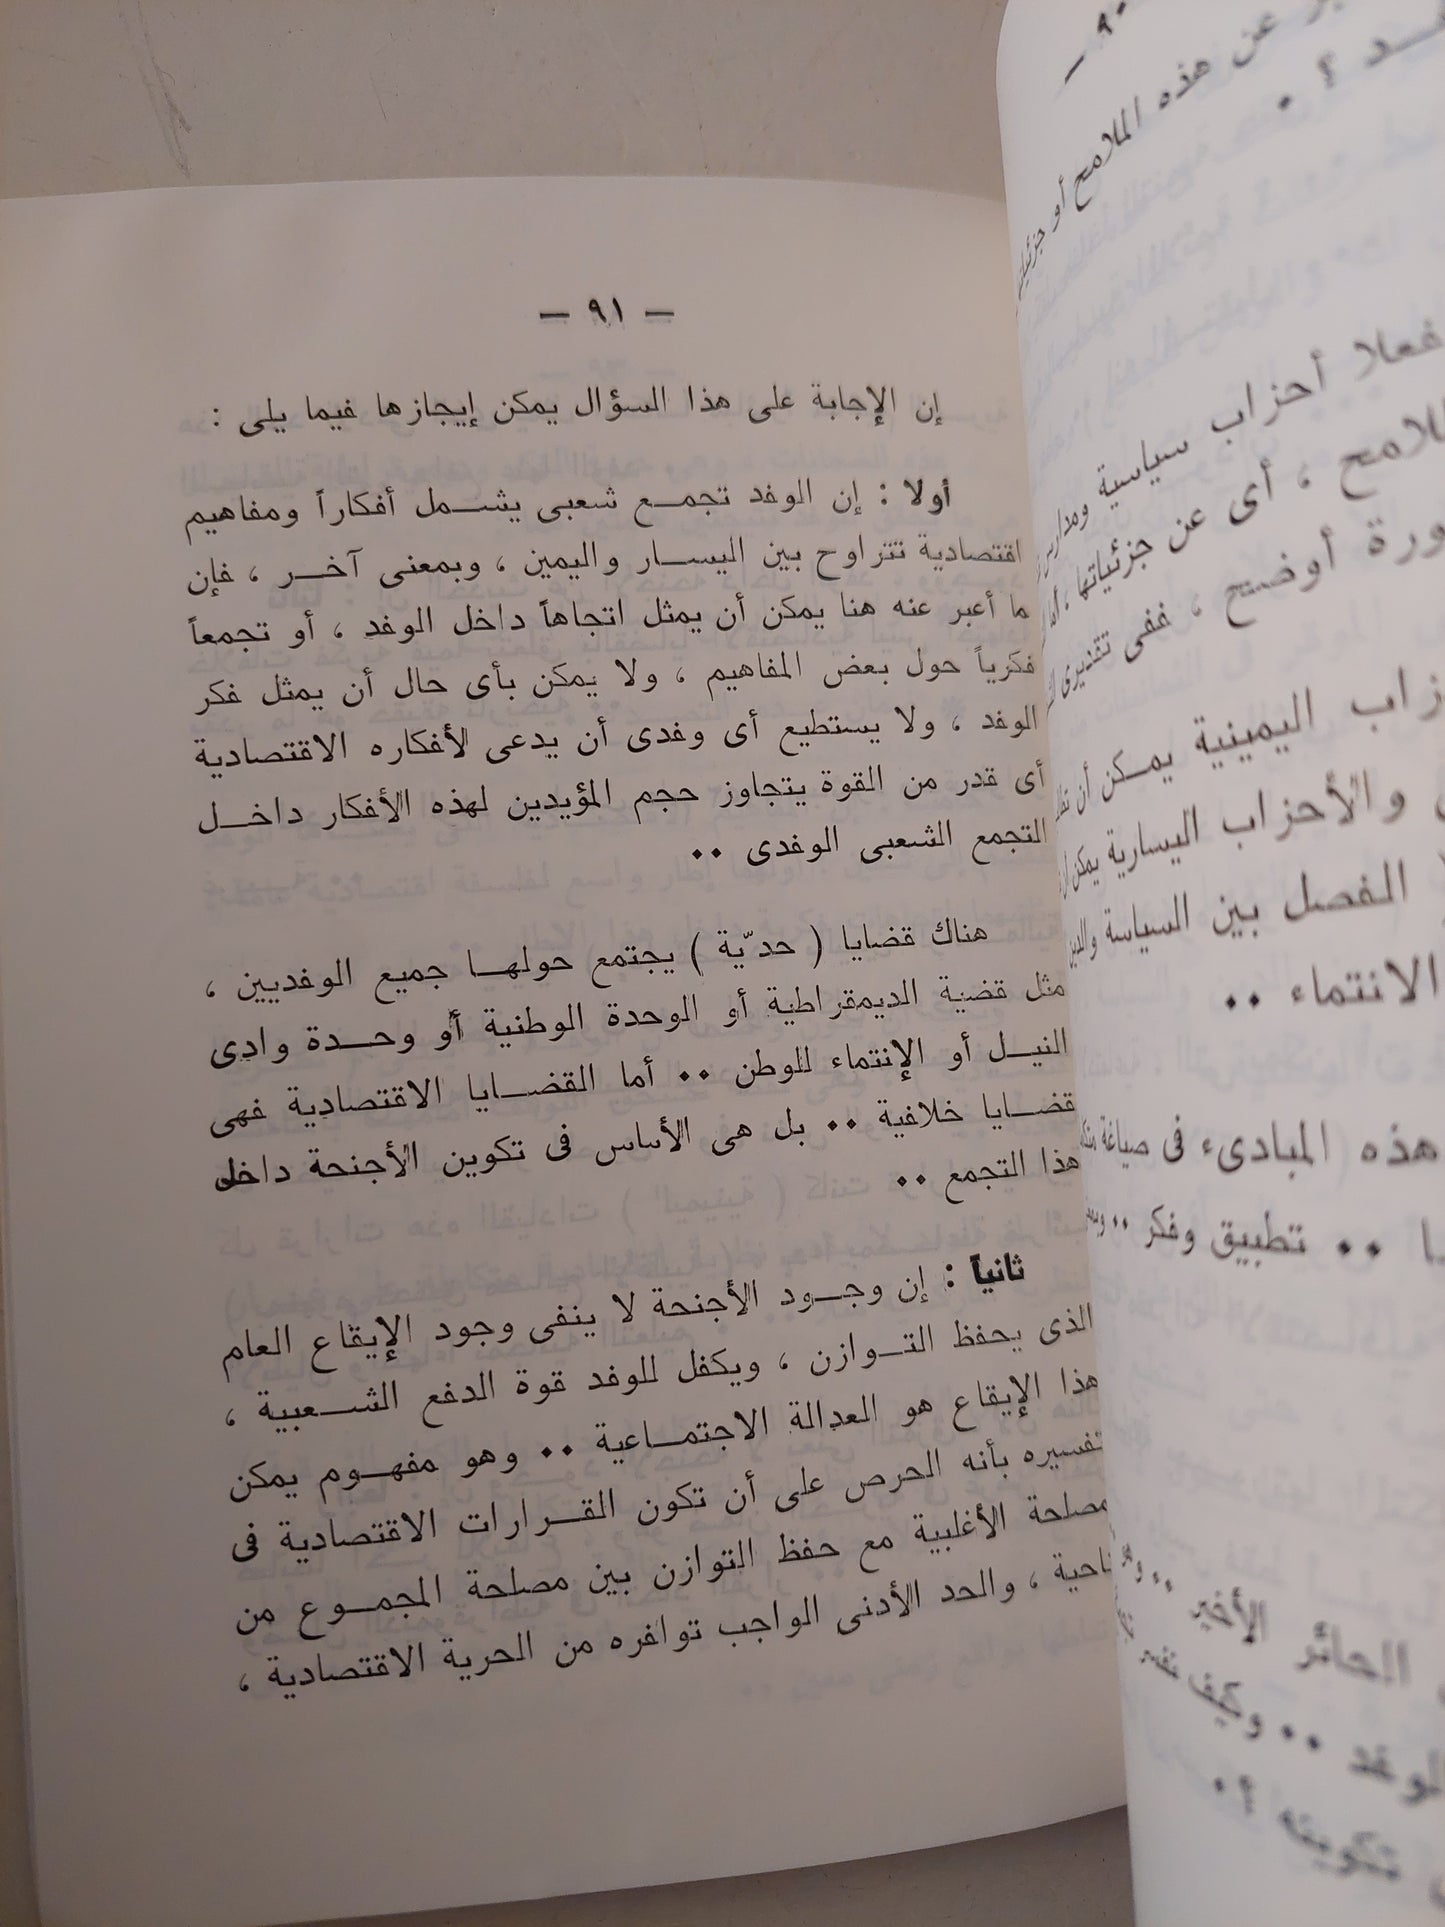 — ٩٠
عن هذه الملامح أو
؟ .
فعلا أحزاب سياسية
، أى عن جزئياتها ،
أوضح ، ففى تقديرى
اليمينية يمكن أن
والأحزاب اليسارية يمكن
الفصل بين السياسة والدين
الانتماء ..
هذه المبادىء فى صياغة
.. تطبيق وفكر ..
الحائر الأخير ..
.. وكيف
— ٩١ —
إن الإجابة على هذا السؤال يمكن إيجازها فيما يلى :
أولا : إن الوفد تجمع شعبى يشمل أفكاراً ومفاهيم
اقتصادية تتراوح بين اليسار واليمين ، وبمعنى آخر ، فإن
ما أعبر عنه هنا يمكن أن يمثل اتجاهاً داخل الوفد ، أو تجمعاً
فكرياً حول بعض المفاهيم ، ولا يمكن بأى حال أن يمثل فكر
الوفد ، ولا يستطيع أى وفدى أن يدعى لأفكاره الاقتصادية
أى قدر من القوة يتجاوز حجم المؤيدين لهذه الأفكار داخل
التجمع الشعبى الوفدى ..
هناك قضايا ( حدّية ) يجتمع حولها جميع الوفديين ،
مثل قضية الديمقراطية أو الوحدة الوطنية أو وحدة وادى
النيل أو الإنتماء للوطن .. أما القضايا الاقتصادية فهى
قضايا خلافية .. بل هى الأساس فى تكوين الأجنحة داخل
هذا التجمع ..
ثانياً : إن وجود الأجنحة لا ينفى وجود الإيقاع العام
الذى يحفظ التوازن ، ويكفل للوفد قوة الدفع الشعبية ،
هذا الإيقاع هو العدالة الاجتماعية .. وهو مفهوم يمكن
تفسيره بأنه الحرص على أن تكون القرارات الاقتصادية فى
مصلحة الأغلبية مع حفظ التوازن بين مصلحة المجموع من
ناحية ، والحد الأدنى الواجب توافره من الحرية الاقتصادية ،